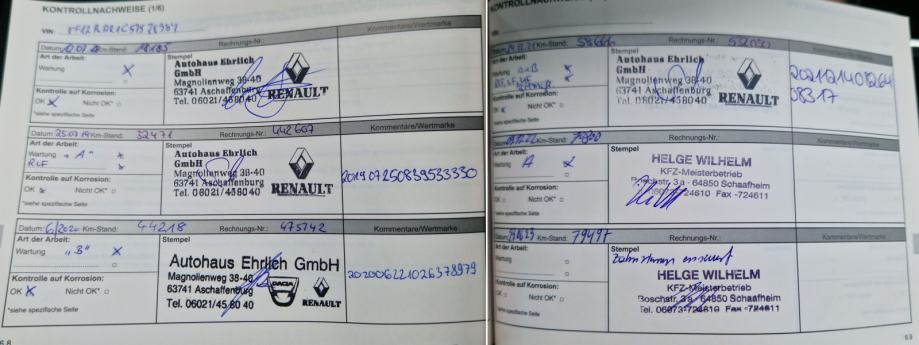 KONTROLLNACHWEISE (1/6)
VIN:
Datum: Km-Stand: Rechnungs-Nr.: Kommentare/Wertmarke
Art der Arbeit: Stempel
Wartung X
Autohaus Ehrlich
GmbH
Magnolienweg 38-40
63741 Aschaffenburg
Tel. 06021/45 80 40
RENAULT
Kontrolle auf Korrosion:
OK X Nicht OK*
*siehe spezifische Seite
Datum: 25.07.19 Km-Stand: 32471 Rechnungs-Nr.: 442607 Kommentare/Wertmarke
Art der Arbeit: Stempel
Wartung "A" x
Autohaus Ehrlich
GmbH
Magnolienweg 38-40
63741 Aschaffenburg
Tel. 06021/45 80 40
RENAULT
20190725083953330
Kontrolle auf Korrosion:
OK Nicht OK*
*siehe spezifische Seite
Datum: 6/2020 Km-Stand: 44218 Rechnungs-Nr.: 475742 Kommentare/Wertmarke
Art der Arbeit: Stempel
Wartung "B" X
Autohaus Ehrlich GmbH
Magnolienweg 38-40
63741 Aschaffenburg
Tel. 06021/45 80 40
DACIA
RENAULT
20200622102637 8979
Kontrolle auf Korrosion:
OK X Nicht OK*
*siehe spezifische Seite
6.8
Km-Stand: Rechnungs-Nr.:
Art der Arbeit: Stempel
Wartung A+B x
Autohaus Ehrlich
GmbH
Magnolienweg 38-40
63741 Aschaffenburg
Tel. 06021/45 80 40
RENAULT
08317
Kontrolle auf Korrosion:
OK Nicht OK*
*siehe spezifische Seite
Datum: Km-Stand: Rechnungs-Nr.: Kommentare/Wertmarke
Art der Arbeit: Stempel
Wartung A x
HELGE WILHELM
KFZ-Meisterbetrieb
Boschstr. 3a - 64850 Schaafheim
Tel. 06073-724610 Fax -724611
Kontrolle auf Korrosion:
OK Nicht OK*
*siehe spezifische Seite
Datum: Km-Stand: 79497 Rechnungs-Nr.: Kommentare/Wertmarke
Art der Arbeit: Stempel
Wartung
Zahnriemen erneuert
HELGE WILHELM
KFZ-Meisterbetrieb
Boschstr. 3a - 64850 Schaafheim
Tel. 06073-724610 Fax -724611
Kontrolle auf Korrosion:
OK Nicht OK*
*siehe spezifische Seite
6.9